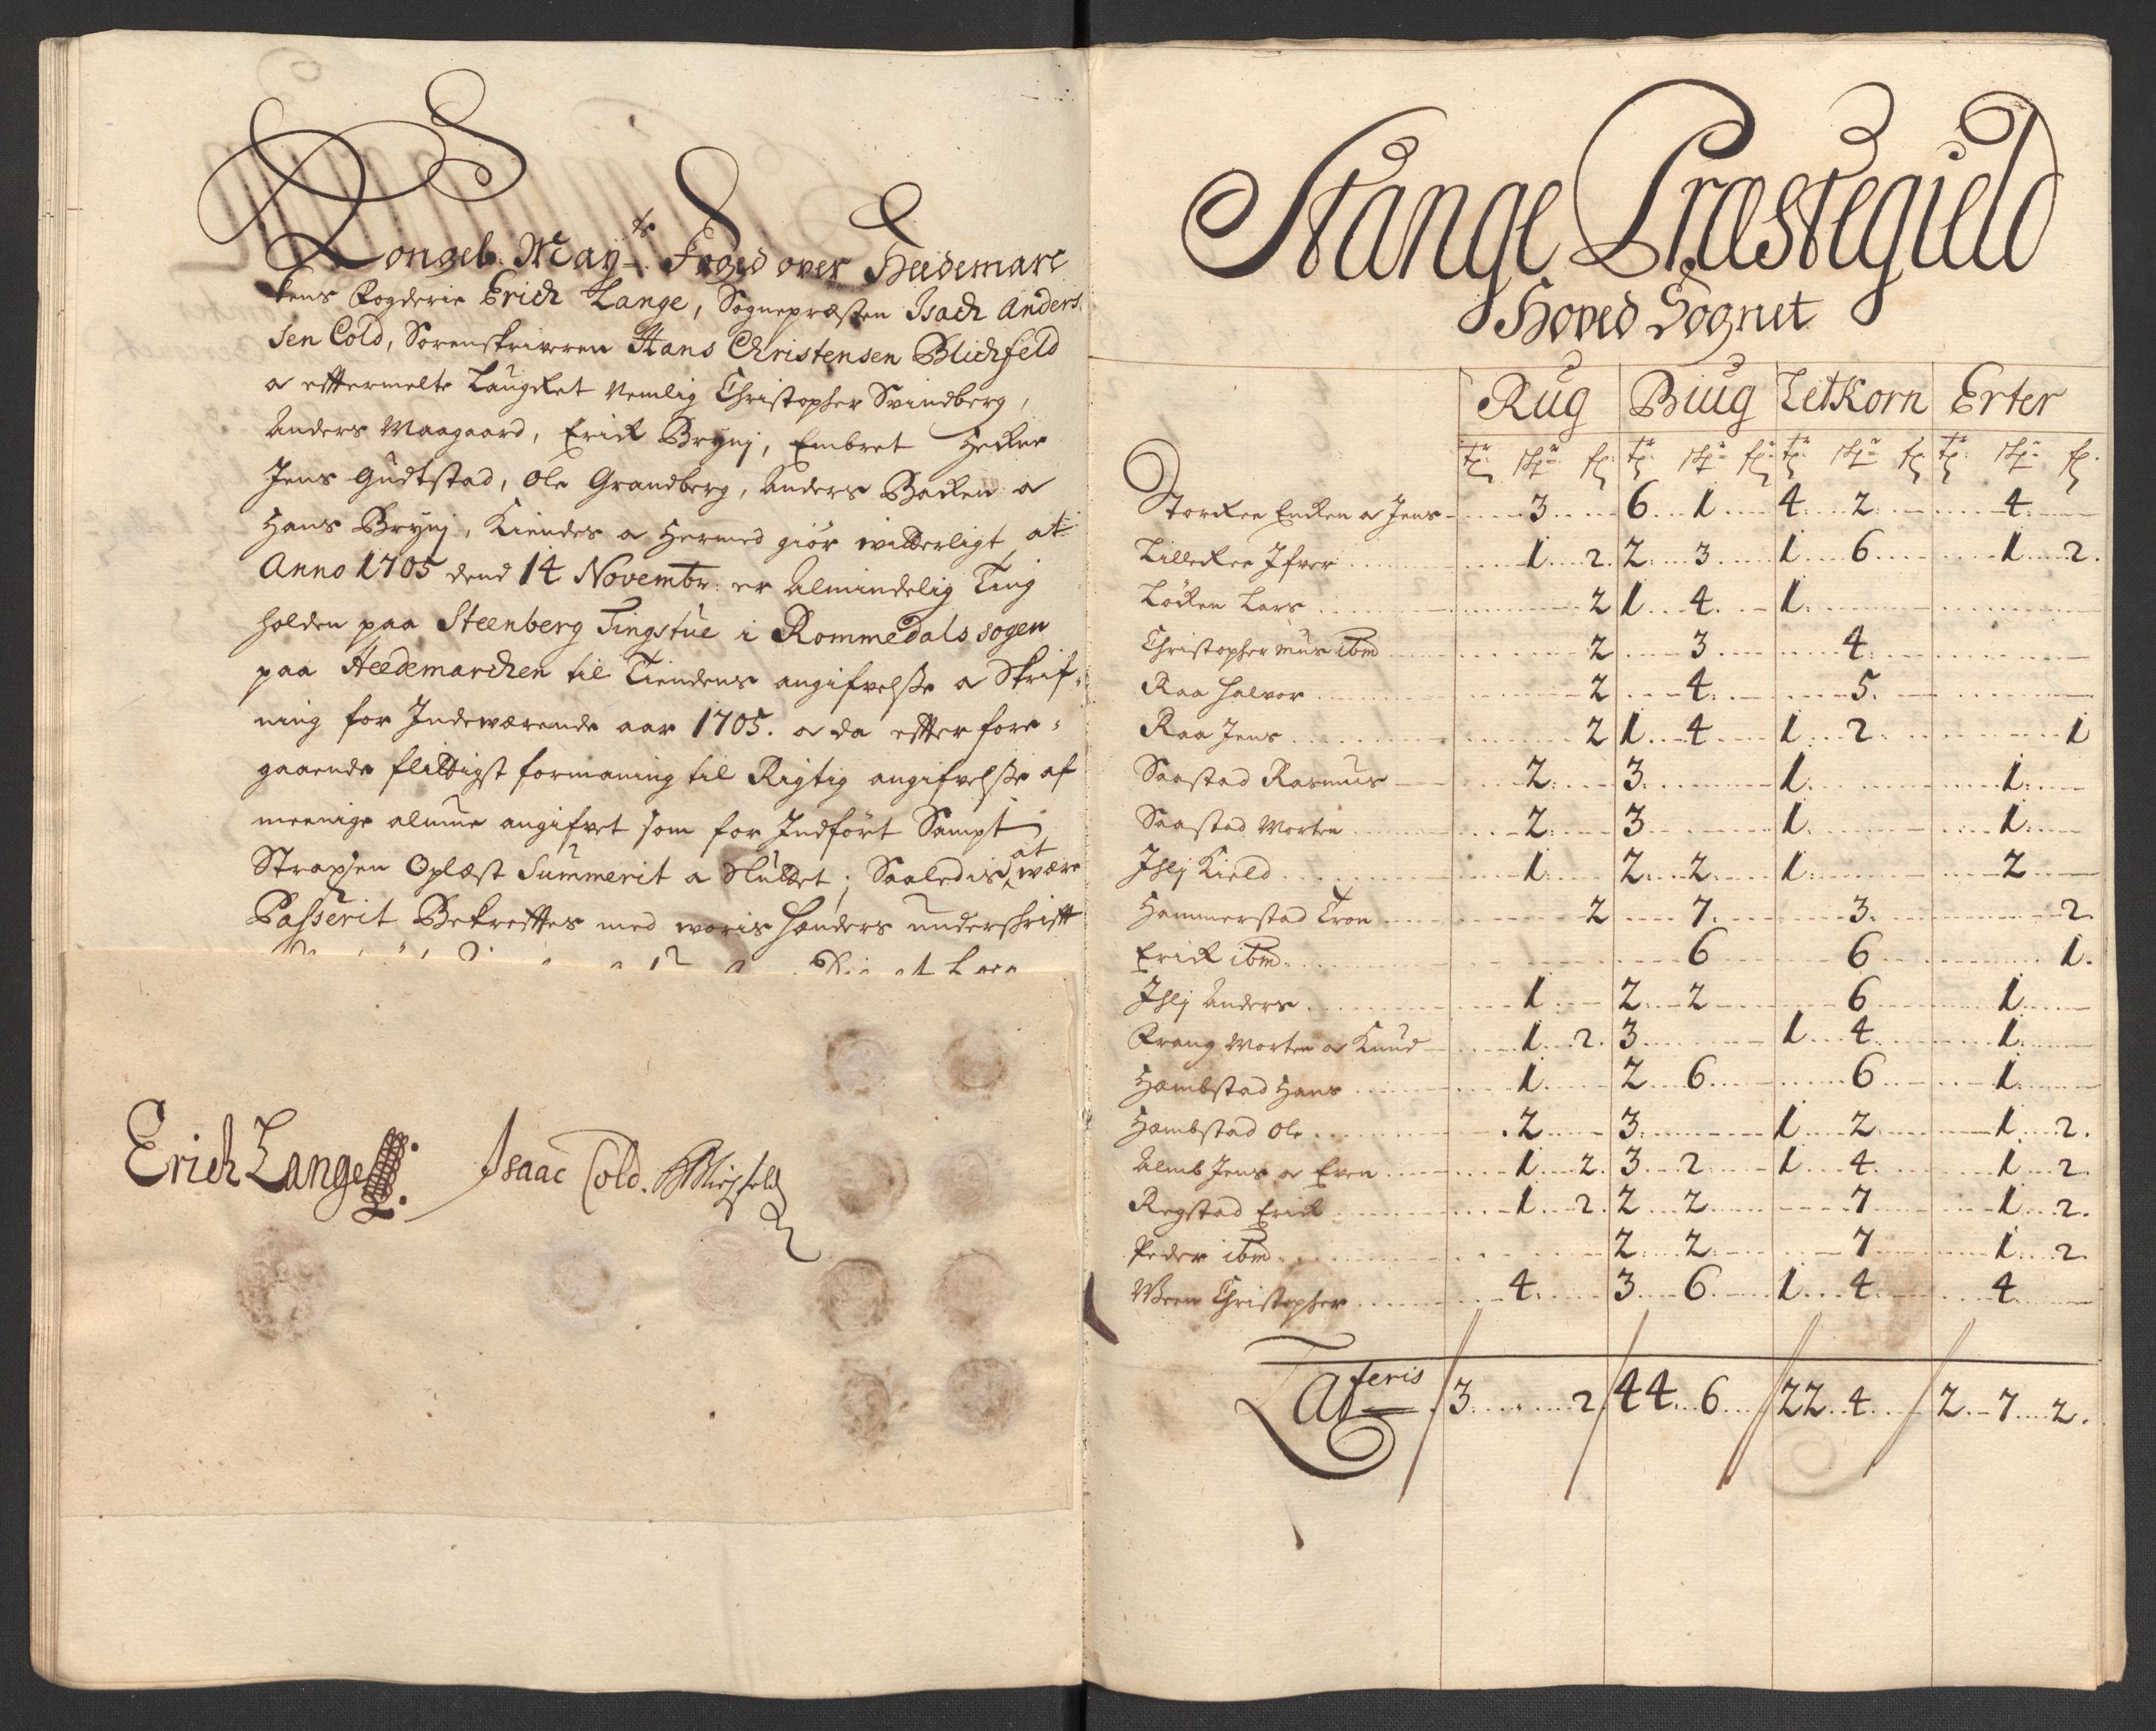 Kongel. May:ts Foged over Heedemarc
kens Fogderie Erich Lange, Sognepræsten Isach Anders
sen Cold, Sorenskriveren Hans Christensen Blichfeld
a effermelte Laugret Nemlig Christopher Svindberg,
Anders Maagaard, Erick Brynj, Embret
Jens Gudtstad, Ole Grandberg, Anders Backen a
Hans Brynj, Kiendes a Hermed giör witterligt, at
Anno 1705 dend 14 Novembr: er Almindelig Ting
holden paa Steenberg Tingstue i Rommedals sogen
paa Heedemarchen til Tiendens angifvelsse a Skrif-
ning for Indeværende aar 1705. a da effter fore-
gaaende flittigst formaning til Rigtig angifvelsse af
meenige almue angifvet som for Indfört Sampt
Straxsen Oplæst Summerit a Sluttet; Saaledis at være
Passerit Bekreffter med woris hænders underschrifft
Erich Lange Isaac Cold. HBlichfeld
Stange Præstegield
Hoved Sognet
Rug Biug Letkorn Erter
tr: skpr: fr: tr: skpr: fr: tr: skpr: fr tr: skpr: fr.
Storcken Encken a Jens 3 6 1 4 2 4
Lillecken Ifver 1 2. 2 3 1 6 1 2.
Löcken Lars 2 1 4 1
Christopher Mus ibm 2 3 4
Raa Halvor 2 4 5
Raa Jens 2 1 4 1 2 1
Saastad Rasmus 2 3 1 1
Saastad Morten 2 3 1 1
Ihlj Kield 1 2 2 1 2
Hammerstad Tron 2 7 3 2.
Erick ibm 6 6 1.
Ihlj Anders 1 2 2 6 1
Frang Morten a Knud 1 2. 3 1 4 1
Hambstad Hans 1 2 6 6 1
Hambstad Ole 2 3 1 2 1 2.
Almb Jens a Even 1 2. 3 2 1 4 1 2.
Regstad Erick 1 2. 2 2 7 1 2.
Peder ibm 2 2 7 1 2.
Ween Christopher 4 3 6 1 4 4
Lateris 3 2. 44 6 22 4 2 7 2.